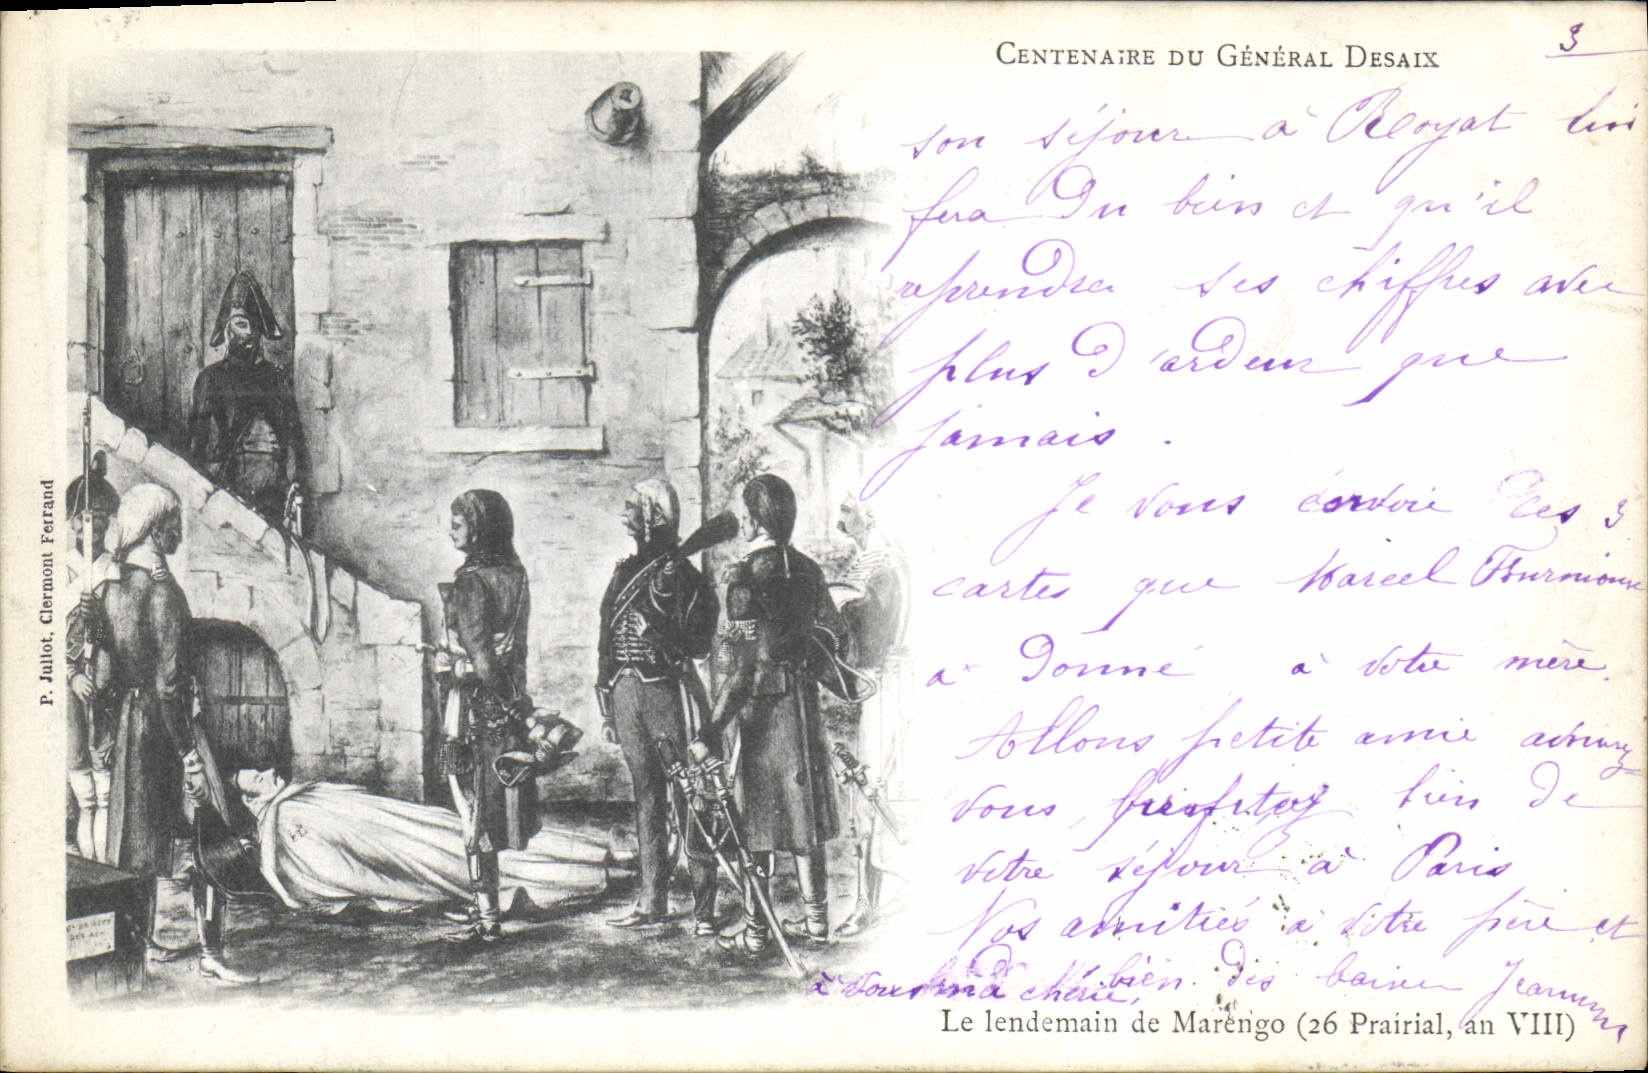 CENTENAIRE DU GÉNÉRAL DESAIX
3
son séjour à Royat lui
fera du bien et qu'il
reprendra ses chiffres avec
plus d'ardeur que
jamais.
Je vous envoie ces 3
cartes que Marcel
a donné à votre mère.
Allons petite amie amusez
vous, profitez bien de
votre séjour à Paris
Nos amitiés à votre père et
à vous ma chérie, bien des baisers Jeanne
Le lendemain de Marengo (26 Prairial, an VIII)
P. Juliot, Clermont Ferrand